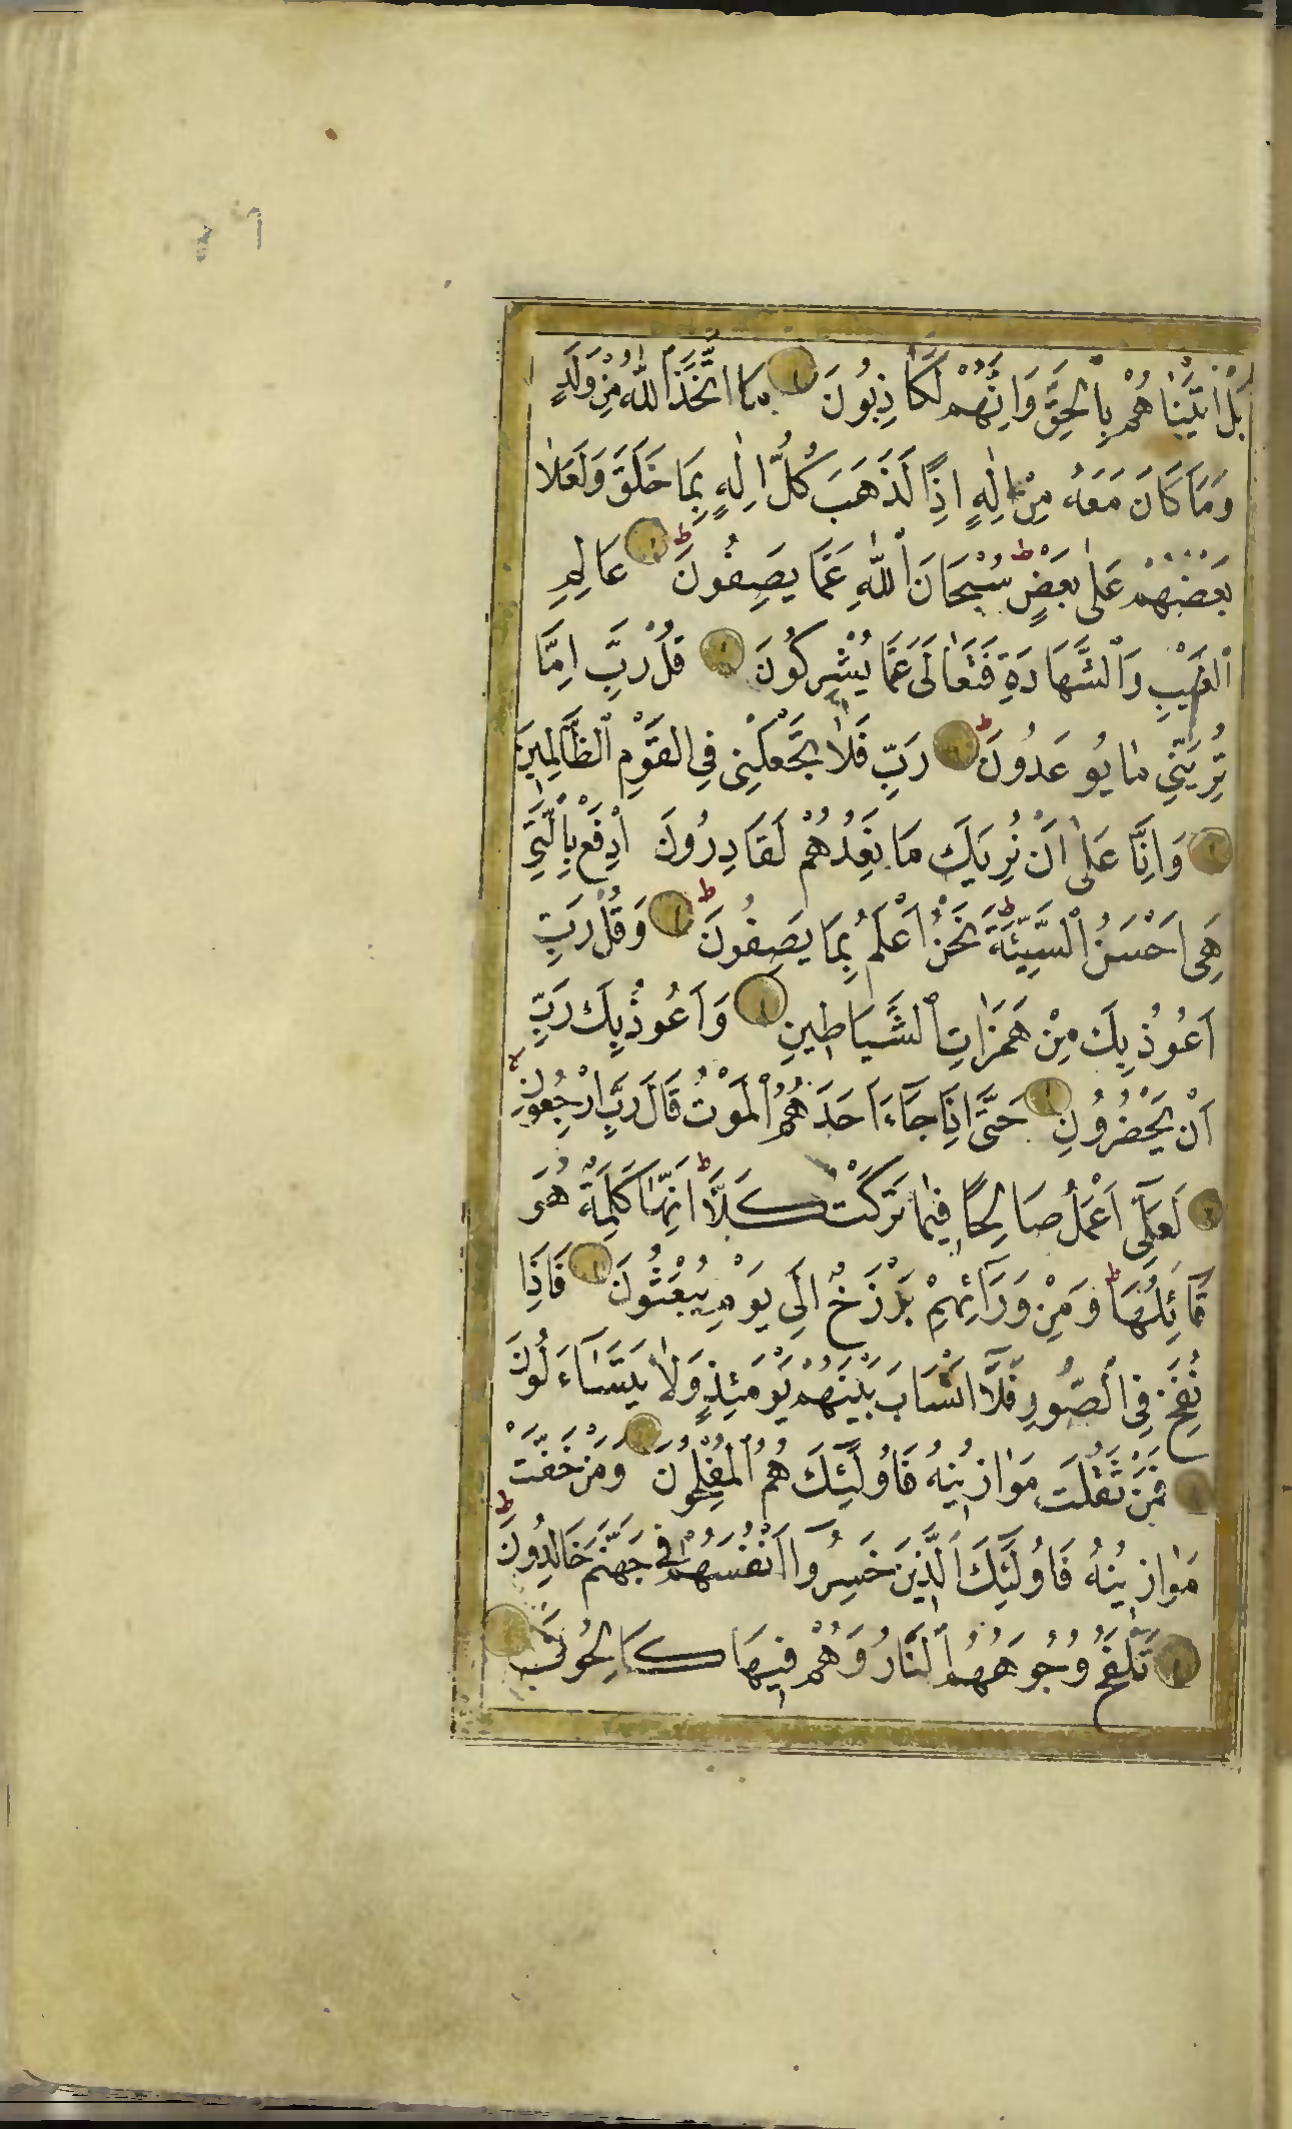 بَلْ اَتَيْنَاهُمْ بِالْحَقِّ وَاِنَّهُمْ لَكَاذِبُونَ مَا اتَّخَذَ اللّٰهُ مِنْ وَلَدٍ
وَمَا كَانَ مَعَهُ مِنْ اِلٰهٍ اِذًا لَذَهَبَ كُلُّ اِلٰهٍ بِمَا خَلَقَ وَلَعَلَا
بَعْضُهُمْ عَلٰى بَعْضٍ ط سُبْحَانَ اللّٰهِ عَمَّا يَصِفُونَ ط عَالِمِ
الْغَيْبِ وَالشَّهَادَةِ فَتَعَالٰى عَمَّا يُشْرِكُونَ قُلْ رَبِّ اِمَّا
تُرِيَنِّي مَا يُوعَدُونَ ط رَبِّ فَلَا تَجْعَلْنِى فِى الْقَوْمِ الظَّالِمِينَ
وَاِنَّا عَلٰى اَنْ نُرِيَكَ مَا نَعِدُهُمْ لَقَادِرُونَ اِدْفَعْ بِالَّتِى
هِىَ اَحْسَنُ السَّيِّئَةَ ط نَحْنُ اَعْلَمُ بِمَا يَصِفُونَ ط وَقُلْ رَبِّ
اَعُوذُ بِكَ مِنْ هَمَزَاتِ الشَّيَاطِينِ وَاَعُوذُ بِكَ رَبِّ
اَنْ يَحْضُرُونِ حَتّٰى اِذَا جَاءَ اَحَدَهُمُ الْمَوْتُ قَالَ رَبِّ ارْجِعُونِ
لَعَلِّى اَعْمَلُ صَالِحًا فِيمَا تَرَكْتُ كَلَّا ط اِنَّهَا كَلِمَةٌ هُوَ
قَآئِلُهَا ط وَمِنْ وَرَآئِهِمْ بَرْزَخٌ اِلٰى يَوْمِ يُبْعَثُونَ فَاِذَا
نُفِخَ فِى الصُّورِ فَلَا اَنْسَابَ بَيْنَهُمْ يَوْمَئِذٍ وَلَا يَتَسَاءَلُونَ
فَمَنْ ثَقُلَتْ مَوَازِينُهُ فَاُولٰئِكَ هُمُ الْمُفْلِحُونَ وَمَنْ خَفَّتْ
مَوَازِينُهُ فَاُولٰئِكَ الَّذِينَ خَسِرُوا اَنْفُسَهُمْ فِى جَهَنَّمَ خَالِدُونَ ط
تَلْفَحُ وُجُوهَهُمُ النَّارُ وَهُمْ فِيهَا كَالِحُونَ